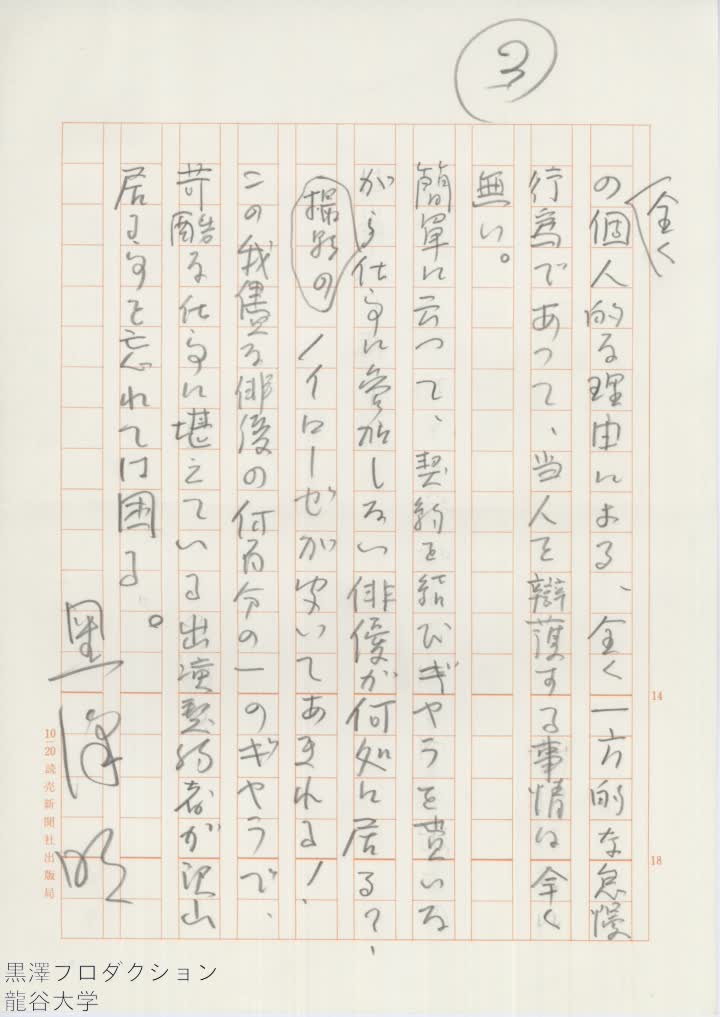 3
全く
の個人的な理由による、全く一方的な怠慢
行為であって、当人を辯護する事情は全く
無い。
簡単に云って、契約を結びギャラを貰いな
がら仕事に参加しない俳優が何処に居る?、
撮影の
ノイローゼが聞いてあきれる!
この我儘な俳優の何百分の一のギャラで、
苛酷な仕事に堪えている出演契約者が沢山
居る事を忘れては困る。
黒澤明
14
18
10-20 読売新聞社出版局
黒澤プロダクション
龍谷大学